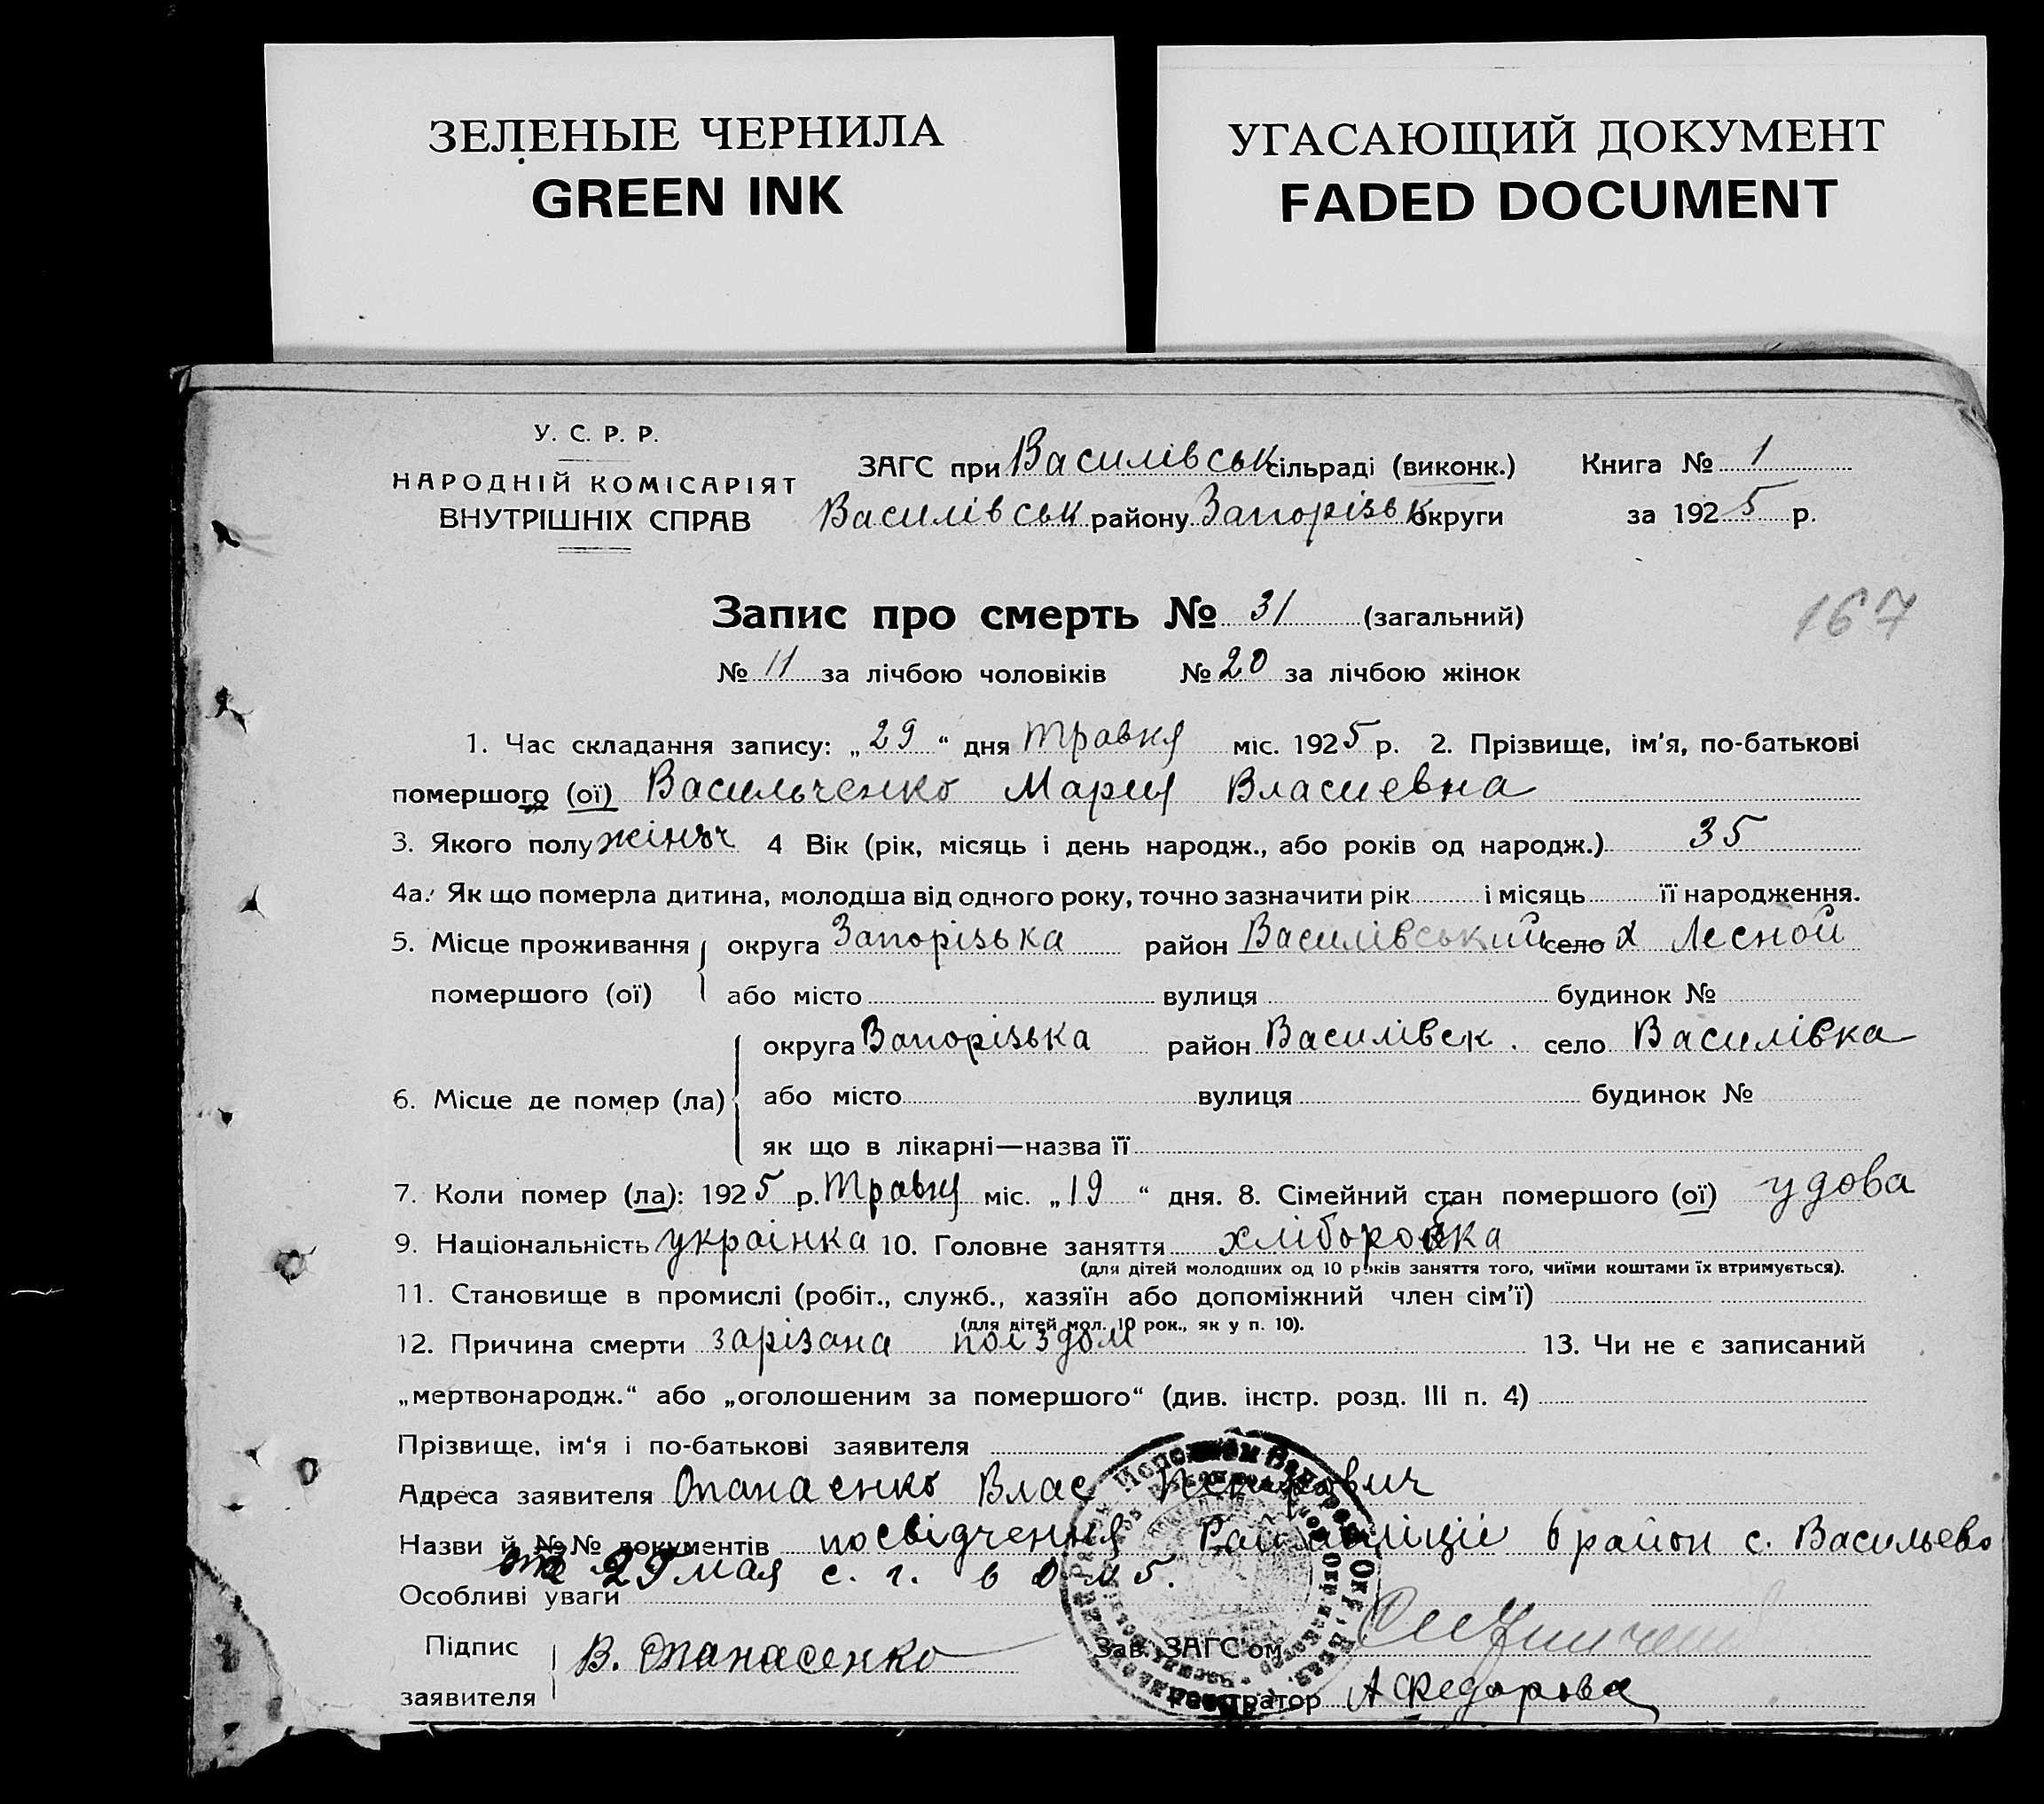 ЗЕЛЕНЫЕ ЧЕРНИЛА
GREEN INK
УГАСАЮЩИЙ ДОКУМЕНТ
FADED DOCUMENT
У. С. Р. Р.
НАРОДНІЙ КОМІСАРІЯТ
ВНУТРІШНІХ СПРАВ
ЗАГС при Василівськ сільраді (виконк.) Книга № 1
Василівськ району Запорізьк округи за 1925 р.
Запис про смерть № 31 (загальний)
167
№ 11 за лічбою чоловіків № 20 за лічбою жінок
1. Час складання запису: „29“ дня травня міс. 1925 р. 2. Прізвище, ім'я, по-батькові
помершого (ої) Васильченко Мария Власиевна
3. Якого полу жіноч 4 Вік (рік, місяць і день народж., або років од народж.) 35
4а. Як що померла дитина, молодша від одного року, точно зазначити рік і місяць її народження.
5. Місце проживання округа Запорізька район Василівський село х Лесной
помершого (ої) або місто вулиця будинок №
округа Запорізька район Василівск. село Василівка
6. Місце де помер (ла) або місто вулиця будинок №
як що в лікарні—назва її
7. Коли помер (ла): 1925 р. травня міс. „19“ дня. 8. Сімейний стан помершого (ої) удова
9. Національність українка 10. Головне заняття хліборобка
(для дітей молодших од 10 років заняття того, чиїми коштами їх втримується).
11. Становище в промислі (робіт., служб., хазяїн або допоміжний член сім'ї)
(для дітей мол. 10 рок., як у п. 10).
12. Причина смерти зарізана поїздом 13. Чи не є записаний
„мертвонародж.“ або „оголошеним за помершого“ (див. інстр. розд. III п. 4)
Прізвище, ім'я і по-батькові заявителя
Адреса заявителя Опанаенко Влас Петрович
Назви й №№ документів посвідчення Райміліції 6 район с. Васильево
29 мая с. г.
Особливі уваги
Підпис В. Опанасенко Зав. ЗАГС'ом
заявителя Реєстратор А Федорова